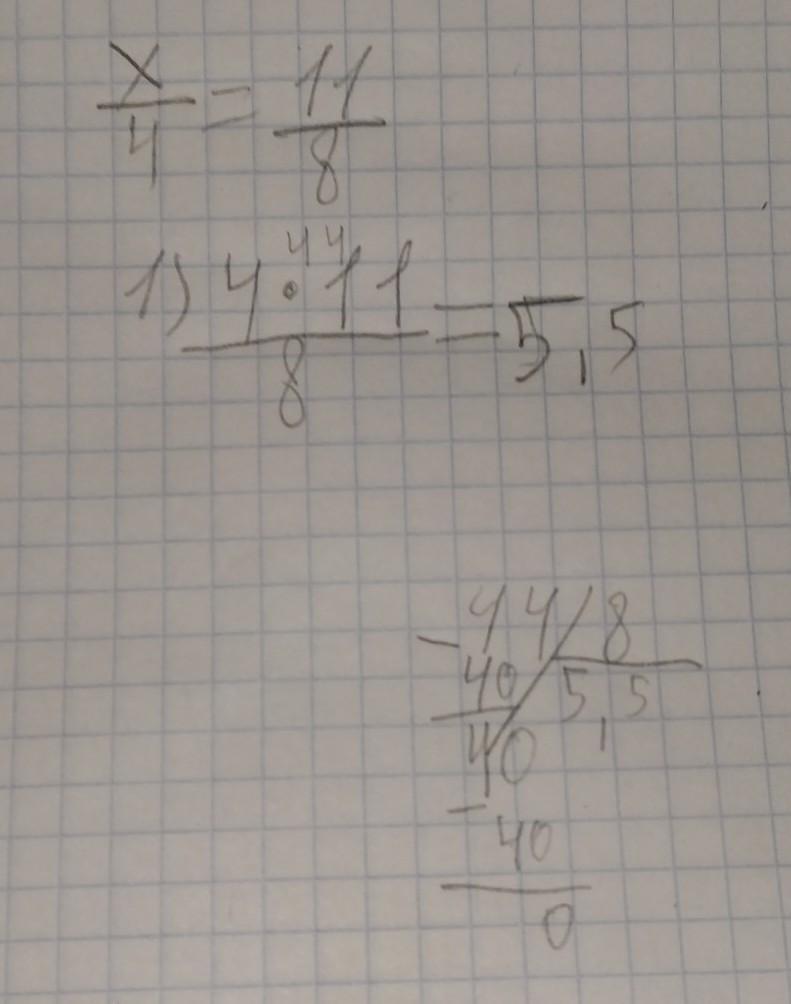 x/4 = 11/8
44
1) 4•11/8 = 5,5
-44/8
40 5,5
40
-40
0